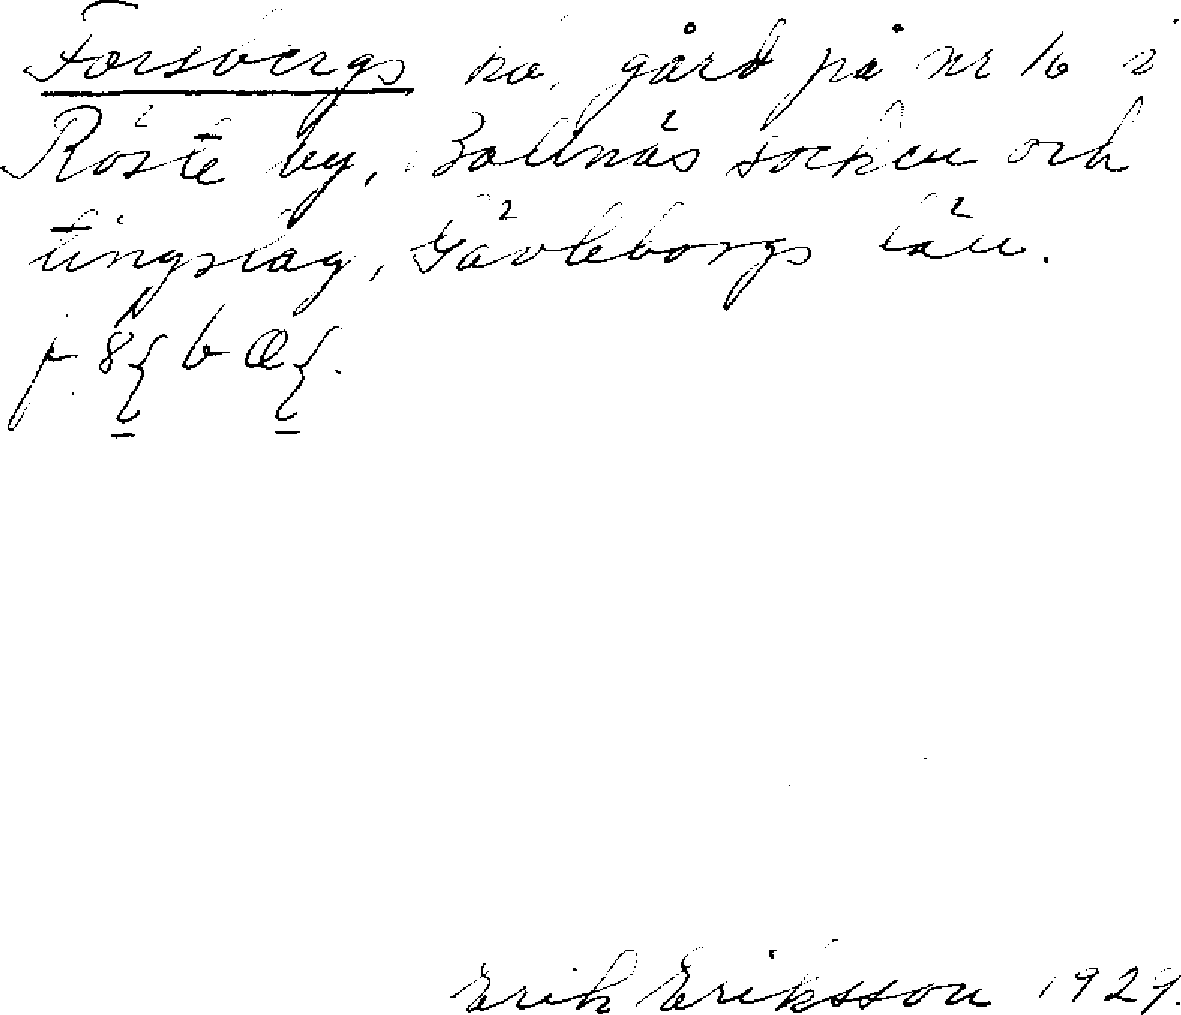 Forsbergs ho, gård på nr 16 i
Röste by, Bollnäs socken och
tingslag, Gävleborgs län.
Erik Eriksson 1929.